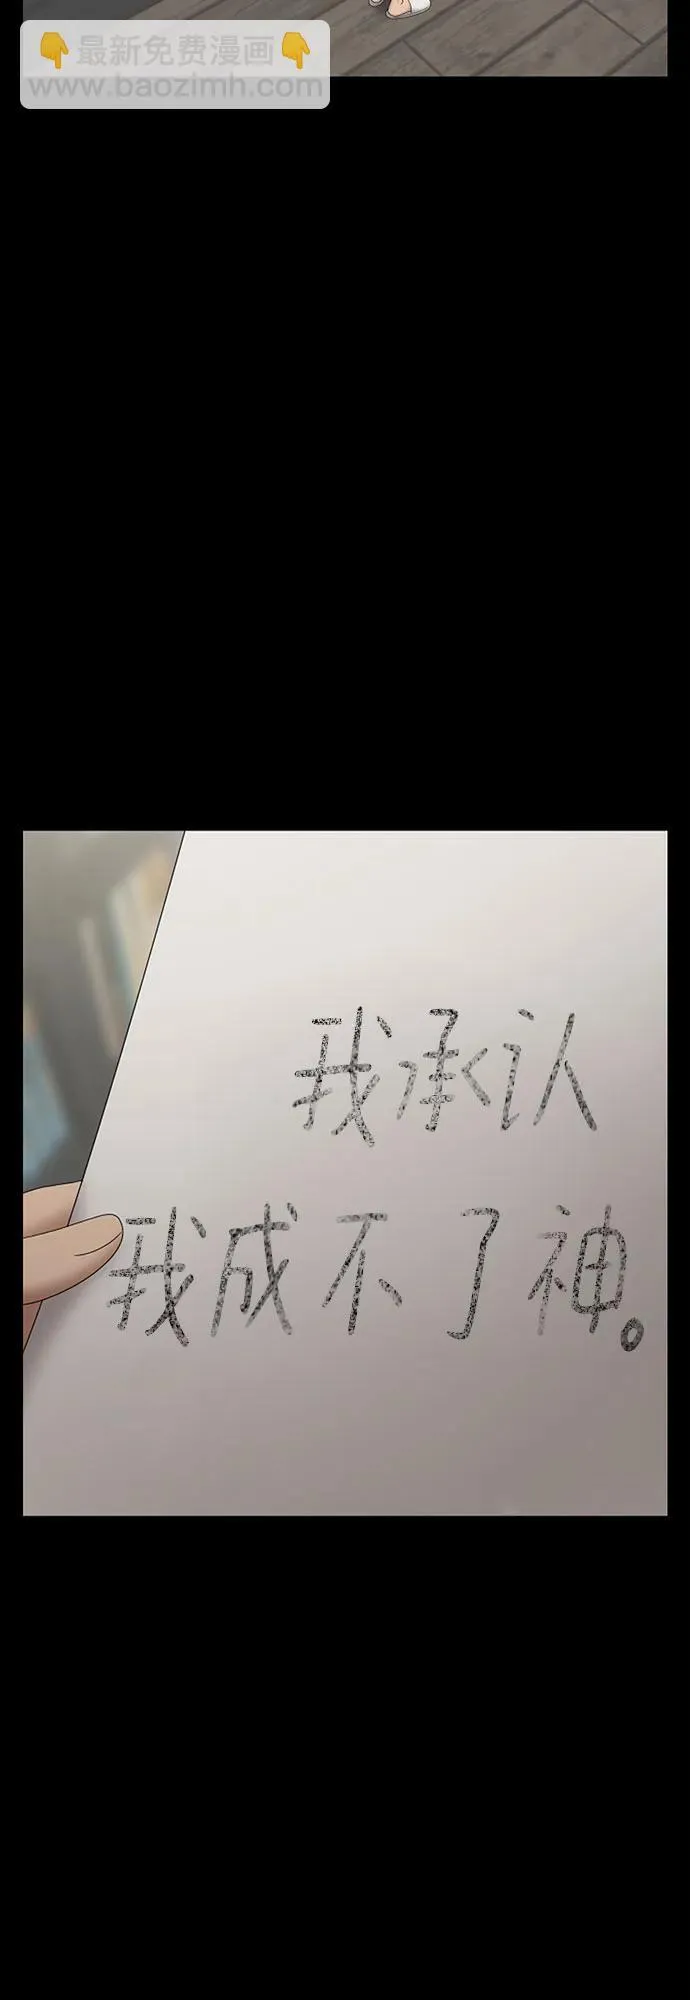 👇最新免费漫画👇
www.baozimh.com
我承认
我成不了神。